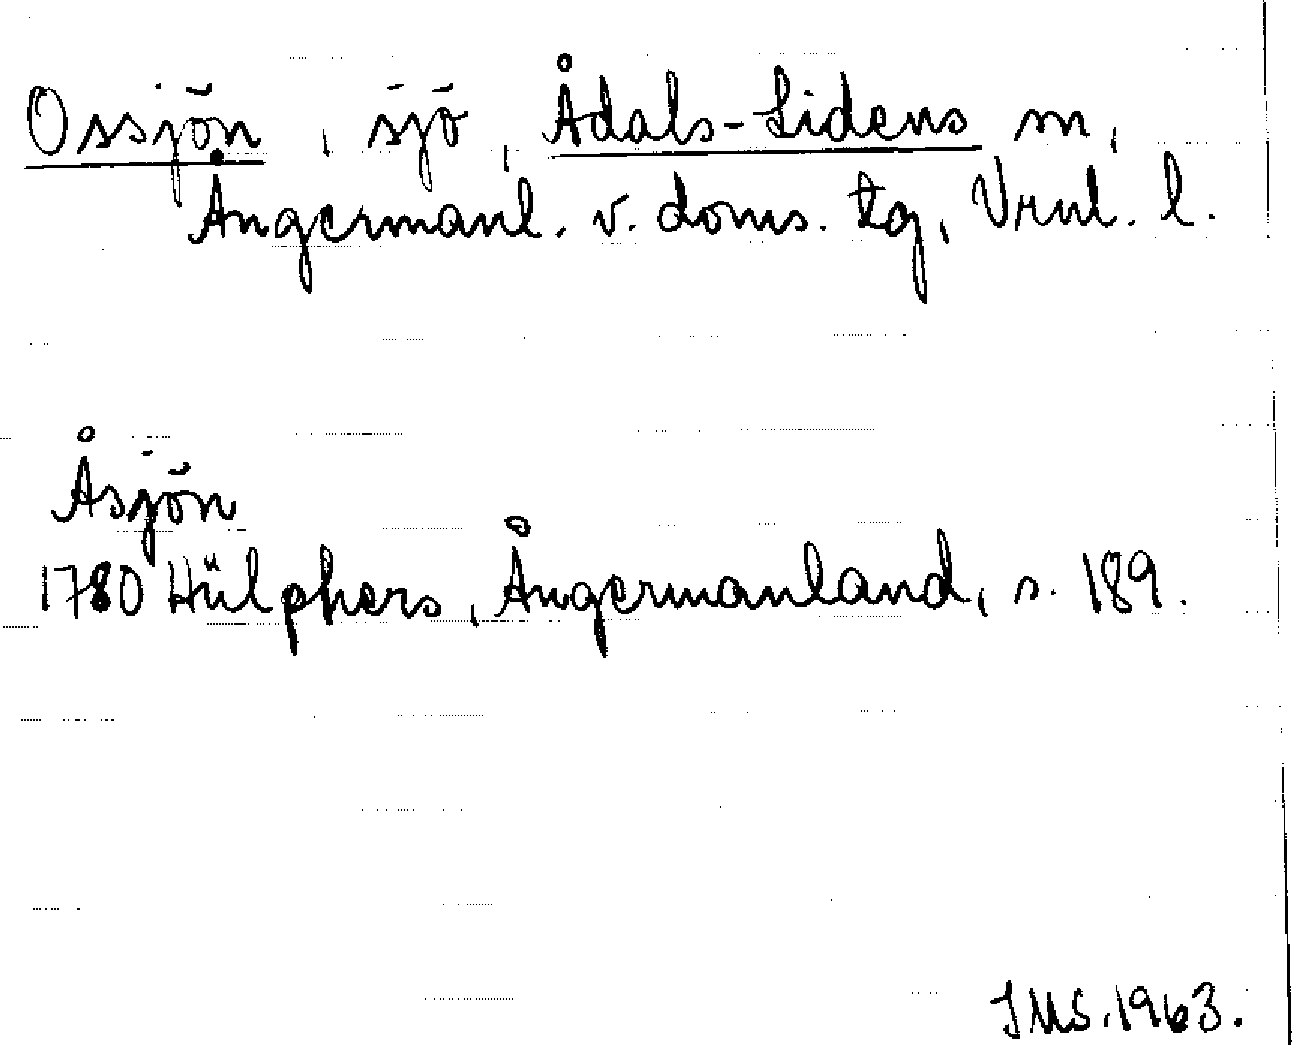 Ossjön, sjö, Ådals-Lidens sn,
Ångermanl. v. doms. tg, Vrnl. l.
Åsjön
1780 Hülphers, Ångermanland, s. 189.
IMS. 1963.